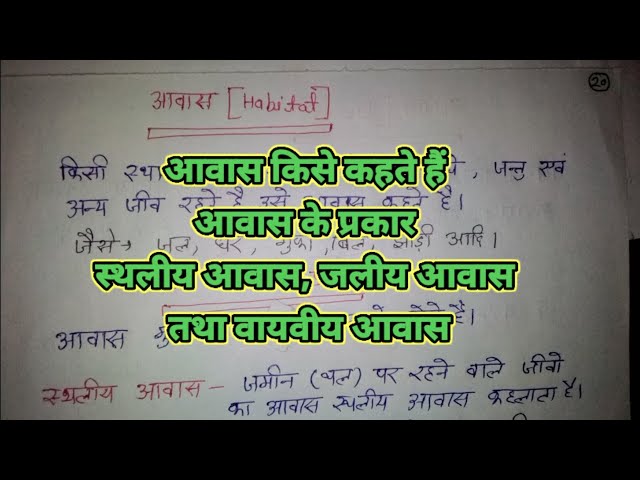 20
आवास [Habitat]
किसी स्था , जन्तु एवं
आवास किसे कहते हैं
अन्य जीव रहते है उसे आवास कहते है।
आवास के प्रकार
जैसे→ जल, घर, गुफा, बिल, झाड़ी आदि।
स्थलीय आवास, जलीय आवास
तथा वायवीय आवास
आवास
स्थलीय आवास – जमीन (थल) पर रहने वाले जीवो
का आवास स्थलीय आवास कहलाता है।